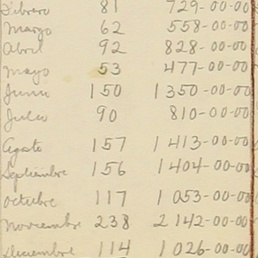 Febrero 81 729-00-00
Marzo 62 558-00-00
Abril 92 828-00-00
Mayo 53 477-00-00
Junio 150 1350-00-00
Julio 90 810-00-00
Agosto 157 1413-00-00
Septiembre 156 1404-00-00
Octubre 117 1053-00-00
Noviembre 238 2142-00-00
Diciembre 114 1026-00-00